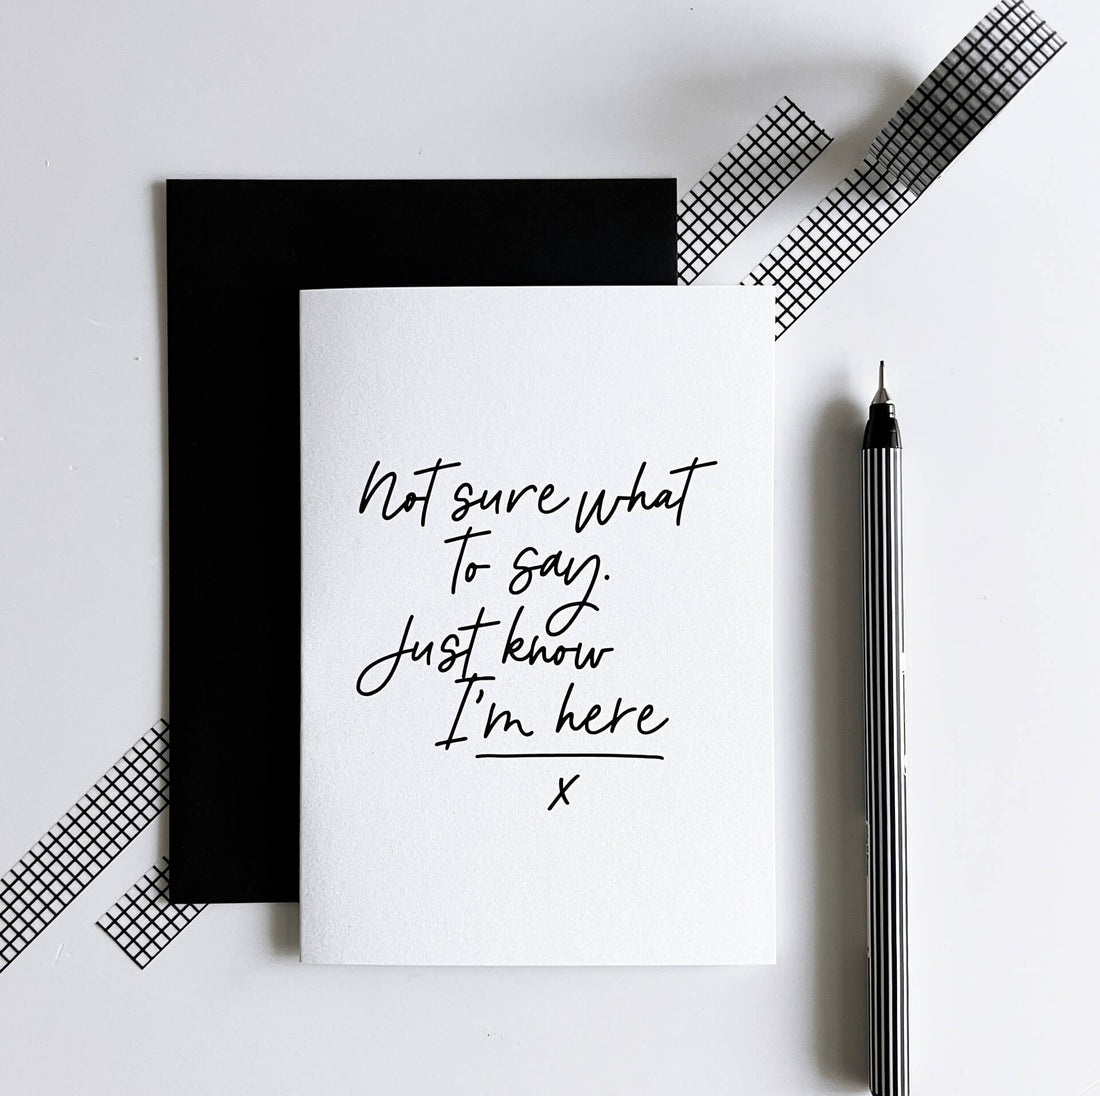 Not sure what
to say.
Just know
I'm here
x